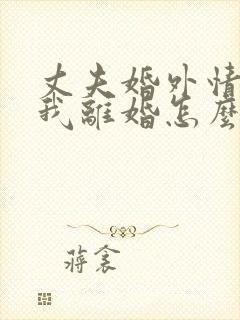 丈夫婚外情
我離婚怎麼
蔣衾